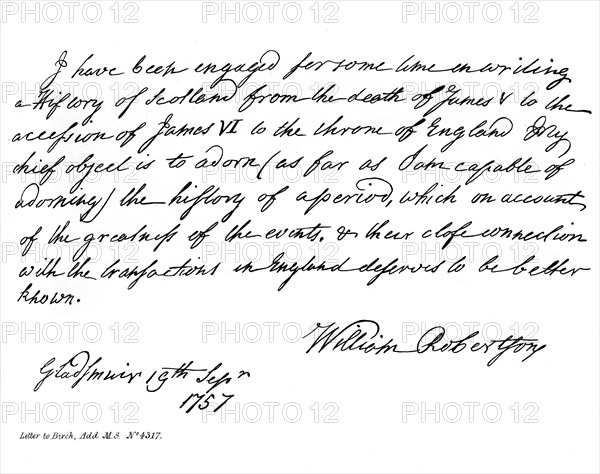 I have been engaged for some time in writing
a History of Scotland from the death of James V to the
accession of James VI to the throne of England My
chief object is to adorn (as far as I am capable of
adorning) the history of a period, which on account
of the greatness of the events, & their close connection
with the transactions in England deserves to be better
known.
William Robertson
Gladsmuir 19th Sepr
1757
Letter to Birch, Add. M.S. No 4317.
PHOTO 12